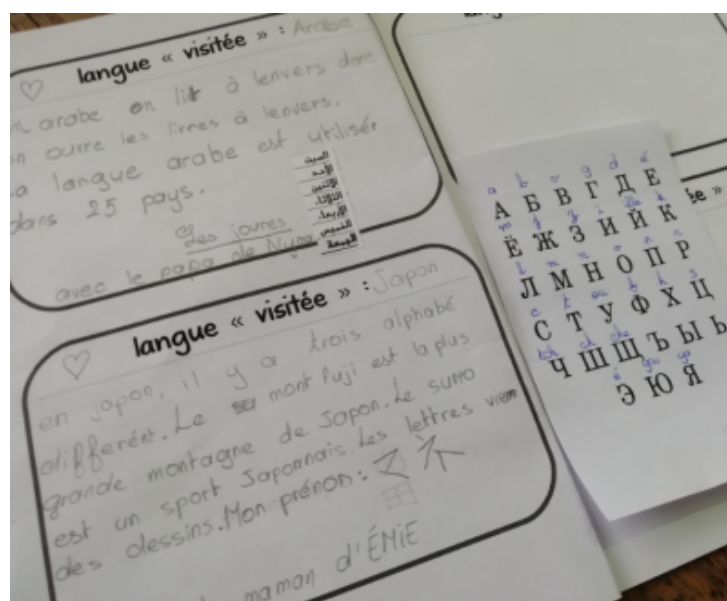 langue « visitée » : Arabe
arabe on lit à lenvers donc
on ouvre les livres à lenvers.
La langue arabe est utilisér
dans 25 pays.
السبت
الأحد
الإثنين
الثلاثاء
الأربعاء
الخميس
الجمعة
les joures
avec le papa de
langue « visitée » : Japon
en japon, il y a trois alphabé
différent. Le mont Fuji est la plus
grande montagne de Japon. Le sumo
est un sport Japonnais. Les lettres vien
des dessins. Mon prénon :
maman d'ÉMiE
ée »
a b v g d é
А Б В Г Д Е
Ё Ж З И Й К
l m n o p r
Л М Н О П Р
С Т У Ф Х Ц
tch ch
Ч Ш Щ Ъ Ы Ь
é you ya
Э Ю Я